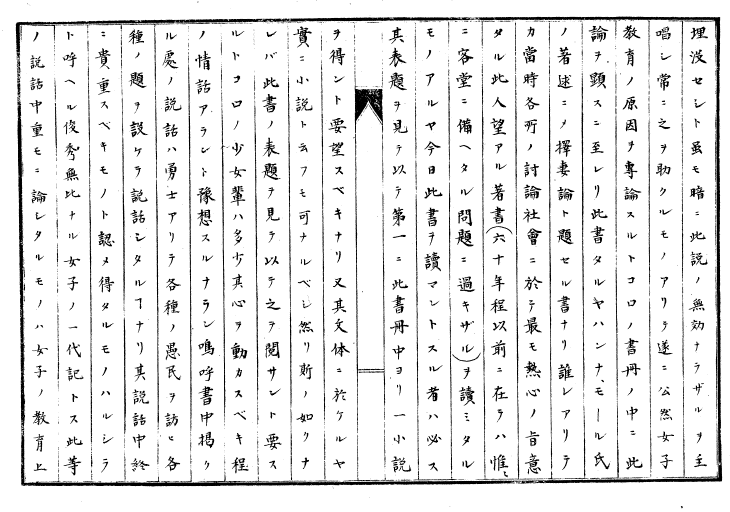 埋没セント虽モ暗ニ此説ノ無効ナラザルヲ主
唱シ常ニ之ヲ助クルモノアリテ遂ニ公然女子
教育ノ原因ヲ專論スルトコロノ書冊ノ中ニ此
論ヲ顕スニ至レリ此書タルヤハンナ、モール氏
ノ著述ニメ擇妻論ト題セル書ナリ誰レアリテ
カ當時各所ノ討論社會ニ於テ最モ熱心ノ旨意
タル此人望アル著書(六十年程以前ニ在ラハ惟ミ
ニ客堂ニ備ヘタル問題ニ過キザル)ヲ讀ミタル
モノアルヤ今日此書ヲ讀マントスル者ハ必ス
其表題ヲ見テ以テ第一ニ此書冊中ヨリ一小説
ヲ得ント要望スベキナリ又其文体ニ於ケルヤ
實ニ小説ト云フモ可ナルベシ然リ斯ノ如クナ
レバ此書ノ表題ヲ見テ以テ之ヲ閲サント要ス
ルトコロノ少女輩ハ多少其心ヲ動カスベキ程
ノ情話アラント豫想スルナラン嗚呼書中掲ケ
ル處ノ説話ハ勇士アリテ各種ノ愚民ヲ訪ヒ各
種ノ題ヲ設ケテ説話シタルヿナリ其説話中終
ニ貴重スベキモノト認メ得タルモノハルシラ
ト呼ヘル俊秀無比ナル女子ノ一代記トス此等
ノ説話中重モニ論シタルモノハ女子ノ教育上